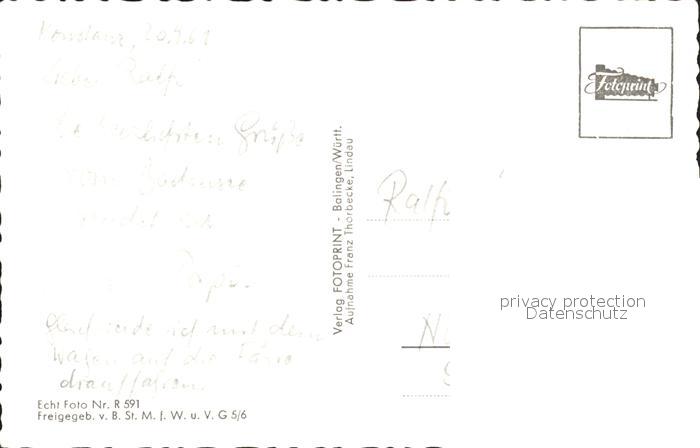 Konstanz, 20.9.61
Lieber Ralf!
Die herzlichsten Grüße
vom Bodensee
sendet Dir
Papa.
Gleich werde ich mit dem
Wagen auf die Fähre
drauffahren.
Echt Foto Nr. R 591
Freigegeb. v. B. St. M. f. W. u. V. G 5/6
Verlag FOTOPRINT - Balingen/Württ.
Aufnahme Franz Thorbecke, Lindau
Fotoprint
Ralf
privacy protection
Datenschutz
N